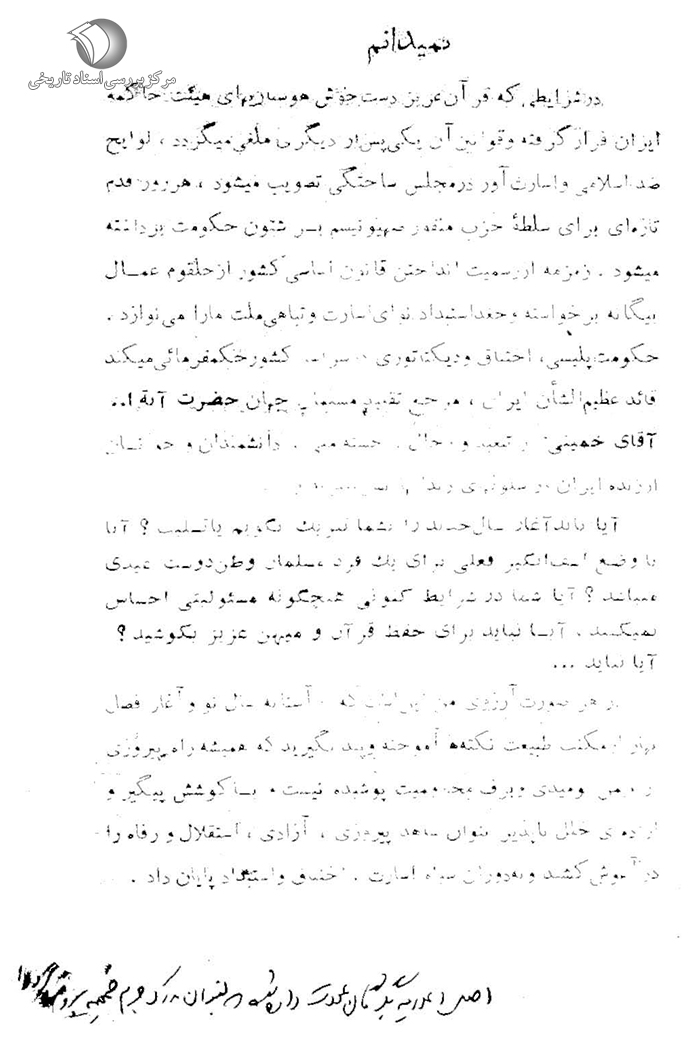 مرکز بررسی اسناد تاریخی
نمیدانم
در شرایطی که قرآن عزیز دست خوش هوسبازیهای هیئت حاکمه
ایران قرار گرفته و قوانین آن یکی پس از دیگری ملغی میگردد ، لوایح
ضد اسلامی و اسارت آور در مجلس ساختگی تصویب میشود ، هر روز قدم
تازه‌ای برای سلطهٔ حزب منفور صهیونیسم بر شئون حکومت برداشته
میشود . زمزمه از رسمیت انداختن قانون اساسی کشور از حلقوم عمال
بیگانه برخواسته و جغد استبداد نوای اسارت و تباهی ملت ما را می‌نوازد .
حکومت پلیسی، اختناق و دیکتاتوری در سراسر کشور حکمفرمائی میکند
قائد عظیم‌الشأن ایران ، مرجع تقلید مسلمانان جهان حضرت آیة‌ا..
آقای خمینی در تبعید و رجال دانشمندان و
ارزنده ایران در سلولهای زندان
آیا باید آغاز سال جدید را بشما تبریک بگویم یا تسلیت ؟ آیا
با وضع اسف‌انگیز فعلی برای یك فرد مسلمان وطن‌دوست عیدی
میباشد ؟ آیا شما در شرایط کنونی هیچگونه مسئولیتی احساس
نمیکنید ، آیا نباید برای حفظ قرآن و میهن عزیز بکوشید ؟
آیا نباید ...
در هر صورت آرزوی من این است که در آستانه سال نو و آغاز فصل
بهار از مکتب طبیعت نکته‌ها آموخته و پند بگیرید که همیشه راه پیروزی
از نومیدی و برف محرومیت پوشیده نیست و با کوشش پیگیر و
اراده‌ی خلل ناپذیر میتوان شاهد پیروزی ، آزادی ، استقلال و رفاه را
در آغوش کشید و به دوران سیاه اسارت . اختناق و استبداد پایان داد .
اصل